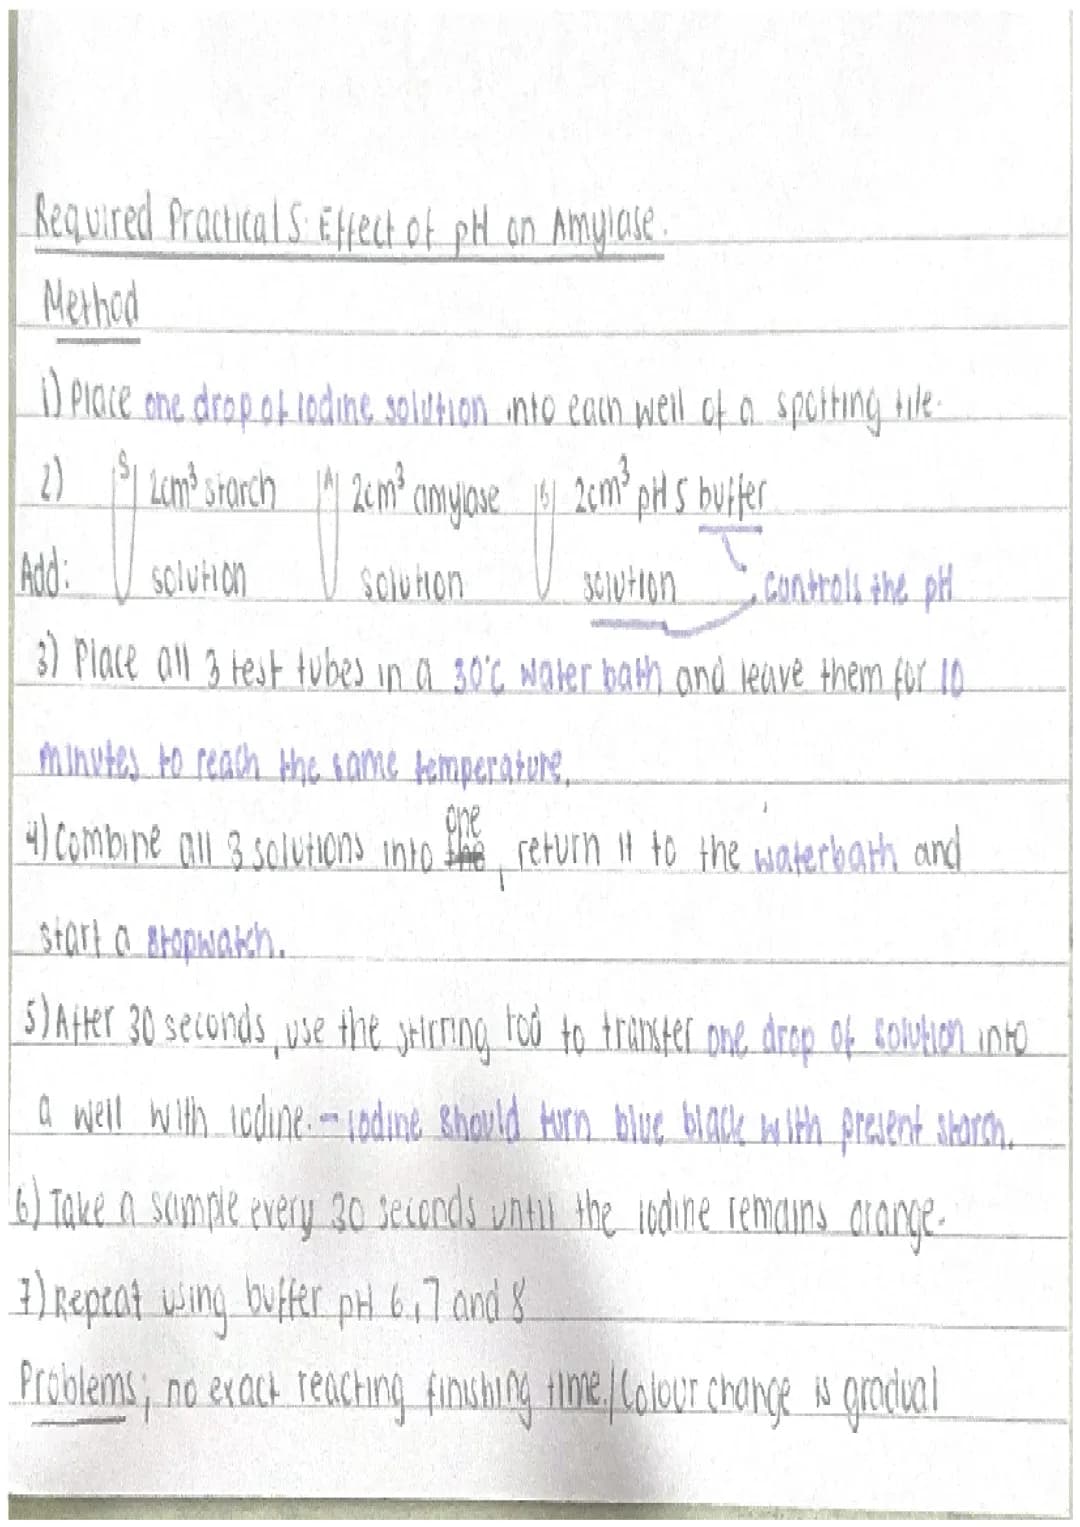 Required Practical 5: Effect of pH on Amylase.
Method
1) Place one drop of iodine solution into each well of a spotting tile.
2) S 2cm³ starch A 2cm³ amylase B 2cm³ pH 5 buffer
Add: solution solution solution controls the pH
3) Place all 3 test tubes in a 30°C water bath and leave them for 10
minutes to reach the same temperature.
one
4) Combine all 3 solutions into the, return it to the waterbath and
start a stopwatch.
5) After 30 seconds, use the stirring rod to transfer one drop of solution into
a well with iodine. - iodine should turn blue black with present starch.
6) Take a sample every 30 seconds until the iodine remains orange.
7) Repeat using buffer pH 6, 7 and 8
Problems; no exact reacting finishing time./Colour change is gradual